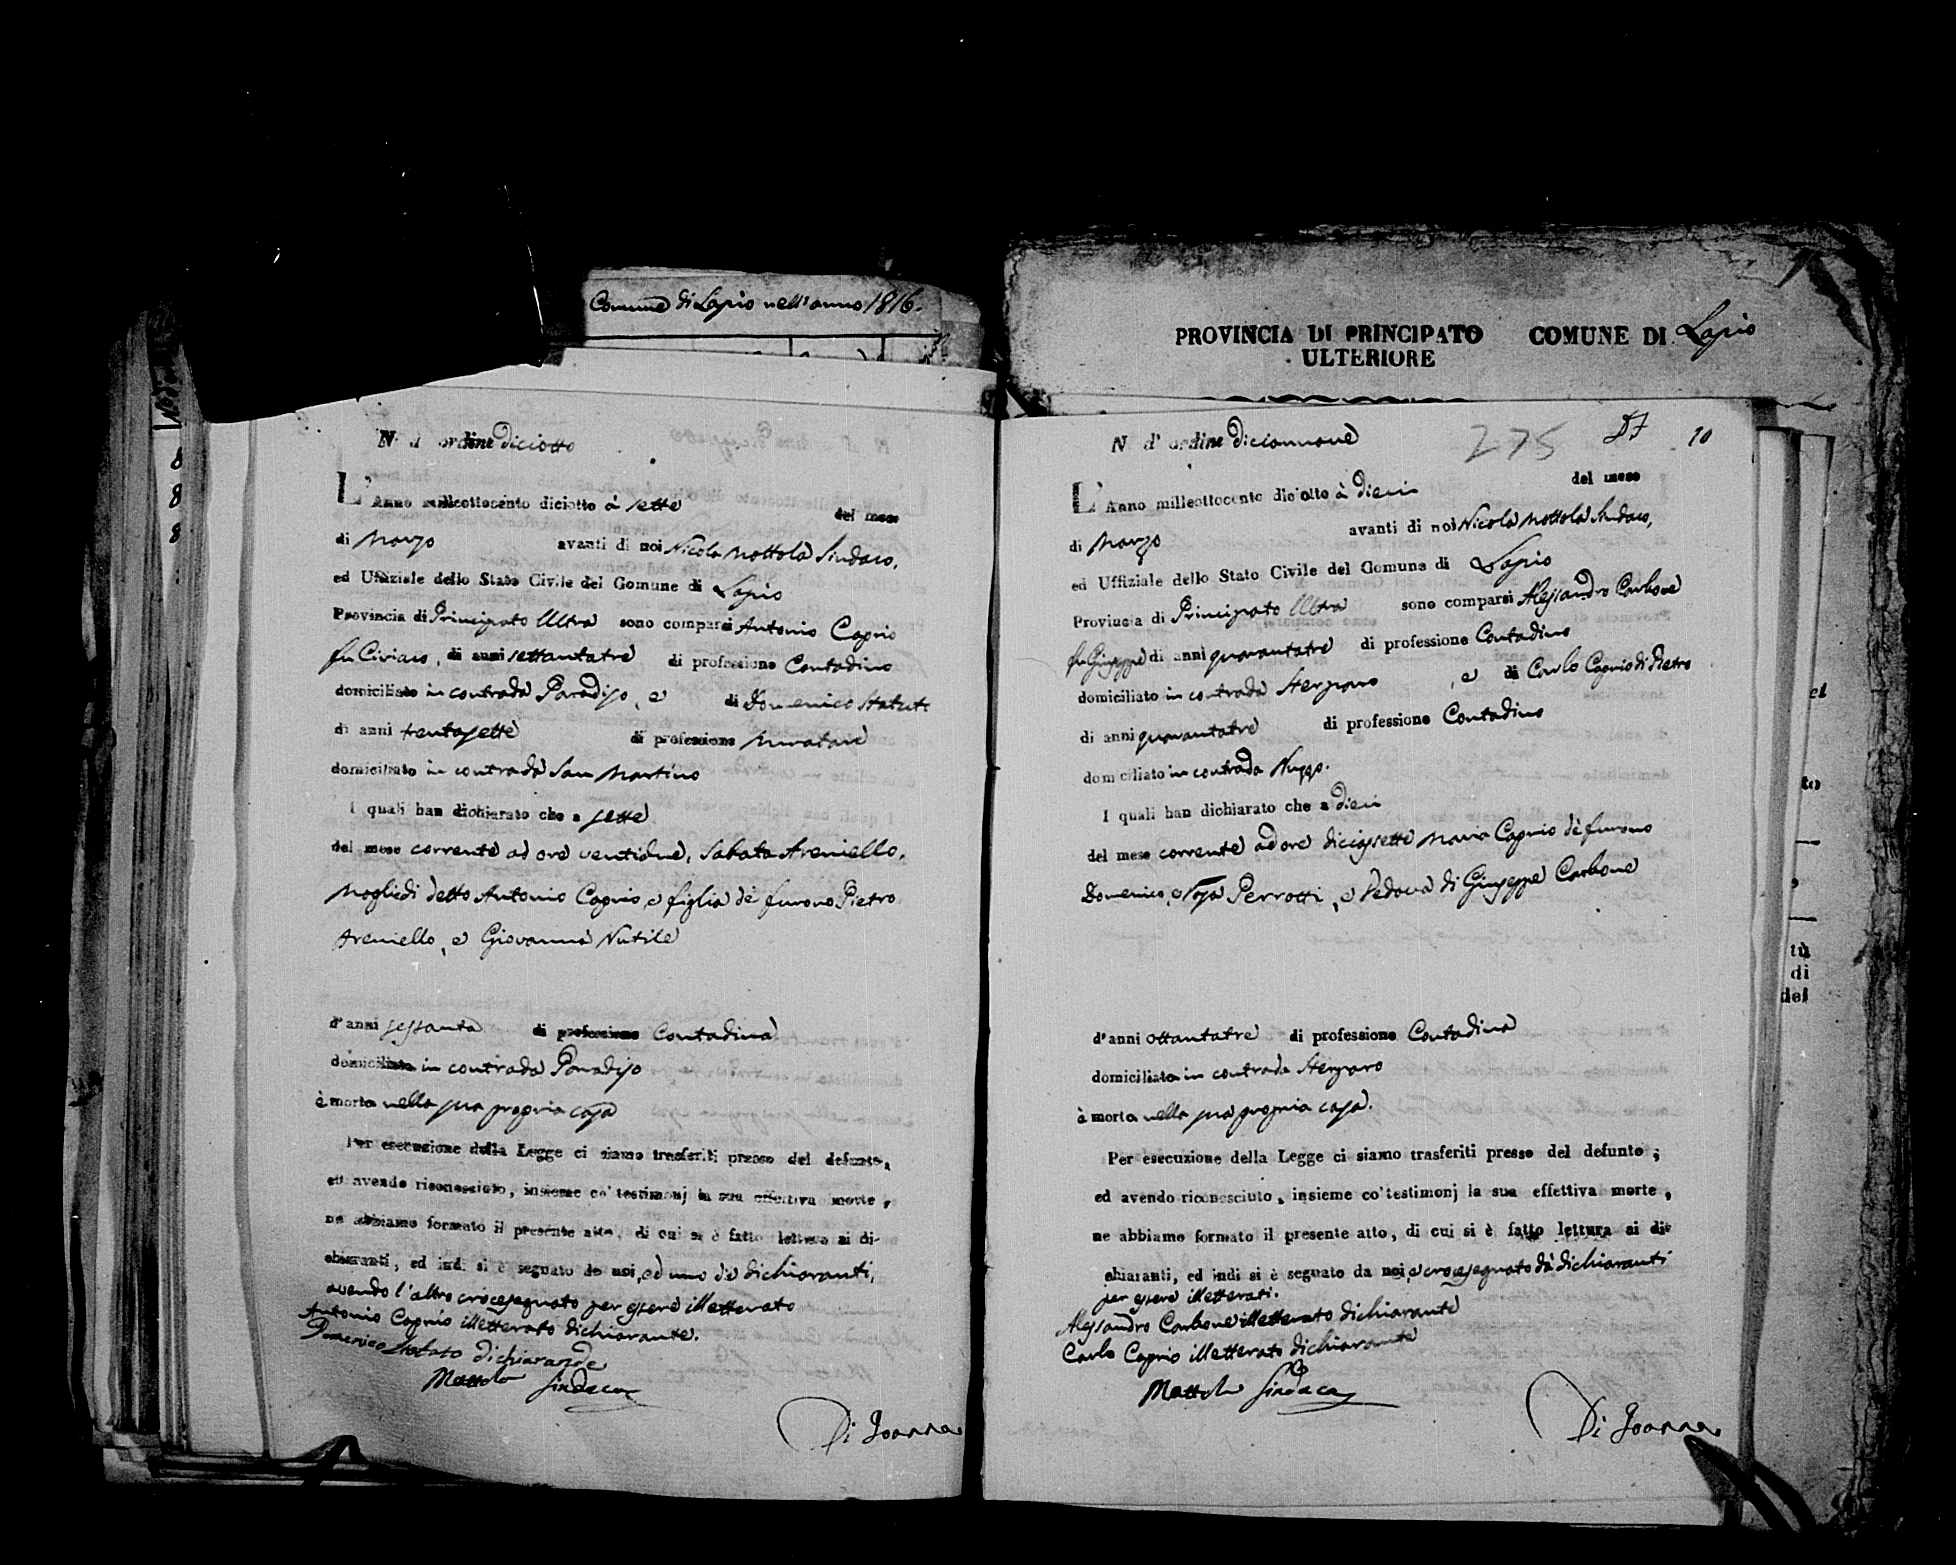 Comune di Lapio nell'anno 1816.
N. d'ordine diciotto
L'Anno milleottocento diciotto à sette del mese
di Marzo avanti di noi Nicola Mottola Sindaco,
ed Uffiziale dello Stato Civile del Comune di Lapio
Provincia di Principato Ultra sono comparsi Antonio Caprio
fu Ciriaco, di anni settantatre di professione Contadino
domiciliato in contrada Paradiso, e di Domenico Statuto
di anni trentasette di professione
domiciliato in contrada San Martino
I quali han dichiarato che a sette
del mese corrente ad ore ventidue, Sabata Areniello,
Moglie di detto Antonio Caprio, e figlia de' furono Pietro
Areniello, e Giovanna Nutile
d'anni sessanta di professione Contadina
domiciliata in contrada Paradiso
è morta nella sua propria casa
Per esecuzione della Legge ci siamo trasferiti presso del defunto,
ed avendo riconosciuto, insieme co'testimonj la sua effettiva morte,
ne abbiamo formato il presente atto, di cui si è fatto lettura ai di-
chiaranti, ed indi si è segnato da noi, ed uno de' dichiaranti,
avendo l'altro crocesegnato per essere illetterato
Antonio Caprio illetterato dichiarante.
Domenico Statuto dichiarande
Mottola Sindaco
Di Joanna
PROVINCIA DI PRINCIPATO COMUNE DI Lapio
ULTERIORE
N. d'ordine diciannove 275 10
L'Anno milleottocento diciotto à dieci del mese
di Marzo avanti di noi Nicola Mottola Sindaco,
ed Uffiziale dello Stato Civile del Comune di Lapio
Provincia di Principato Ultra sono comparsi Alessandro Carbone
fu Giuseppe di anni quarantatre di professione Contadino
domiciliato in contrada Sterparo, e di Carlo Caprio di Pietro
di anni quarantatre di professione Contadino
domiciliato in contrada
I quali han dichiarato che a dieci
del mese corrente ad ore diciassette Maria Caprio de' furono
Domenico, e Rosa Perrotti, e Vedova di Giuseppe Carbone
d'anni ottantatre di professione Contadina
domiciliata in contrada Sterparo
è morta nella sua propria casa.
Per esecuzione della Legge ci siamo trasferiti presso del defunto;
ed avendo riconosciuto, insieme co'testimonj la sua effettiva morte,
ne abbiamo formato il presente atto, di cui si è fatto lettura ai di-
chiaranti, ed indi si è segnato da noi, e crocesegnato da' dichiaranti
per essere illetterati.
Alessandro Carbone illetterato dichiarante
Carlo Caprio illetterato dichiarante
Mottola Sindaco
Di Joanna